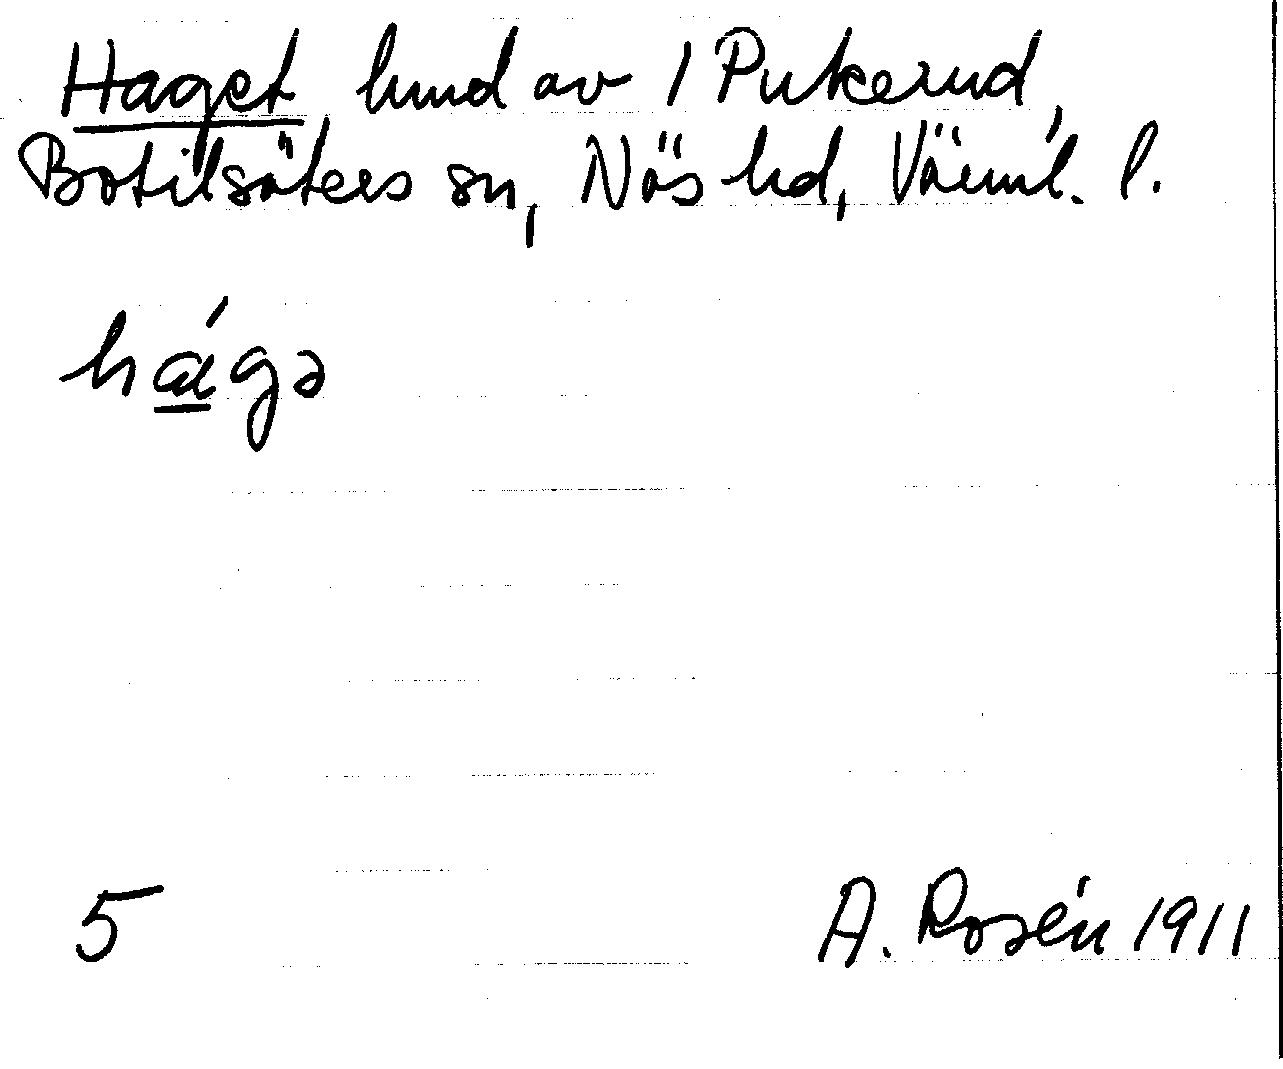 Haget, hmd av 1 Pukerud,
Botilsäters sn, Näs hd, Värml. l.
hágə
5
A. Rosén 1911